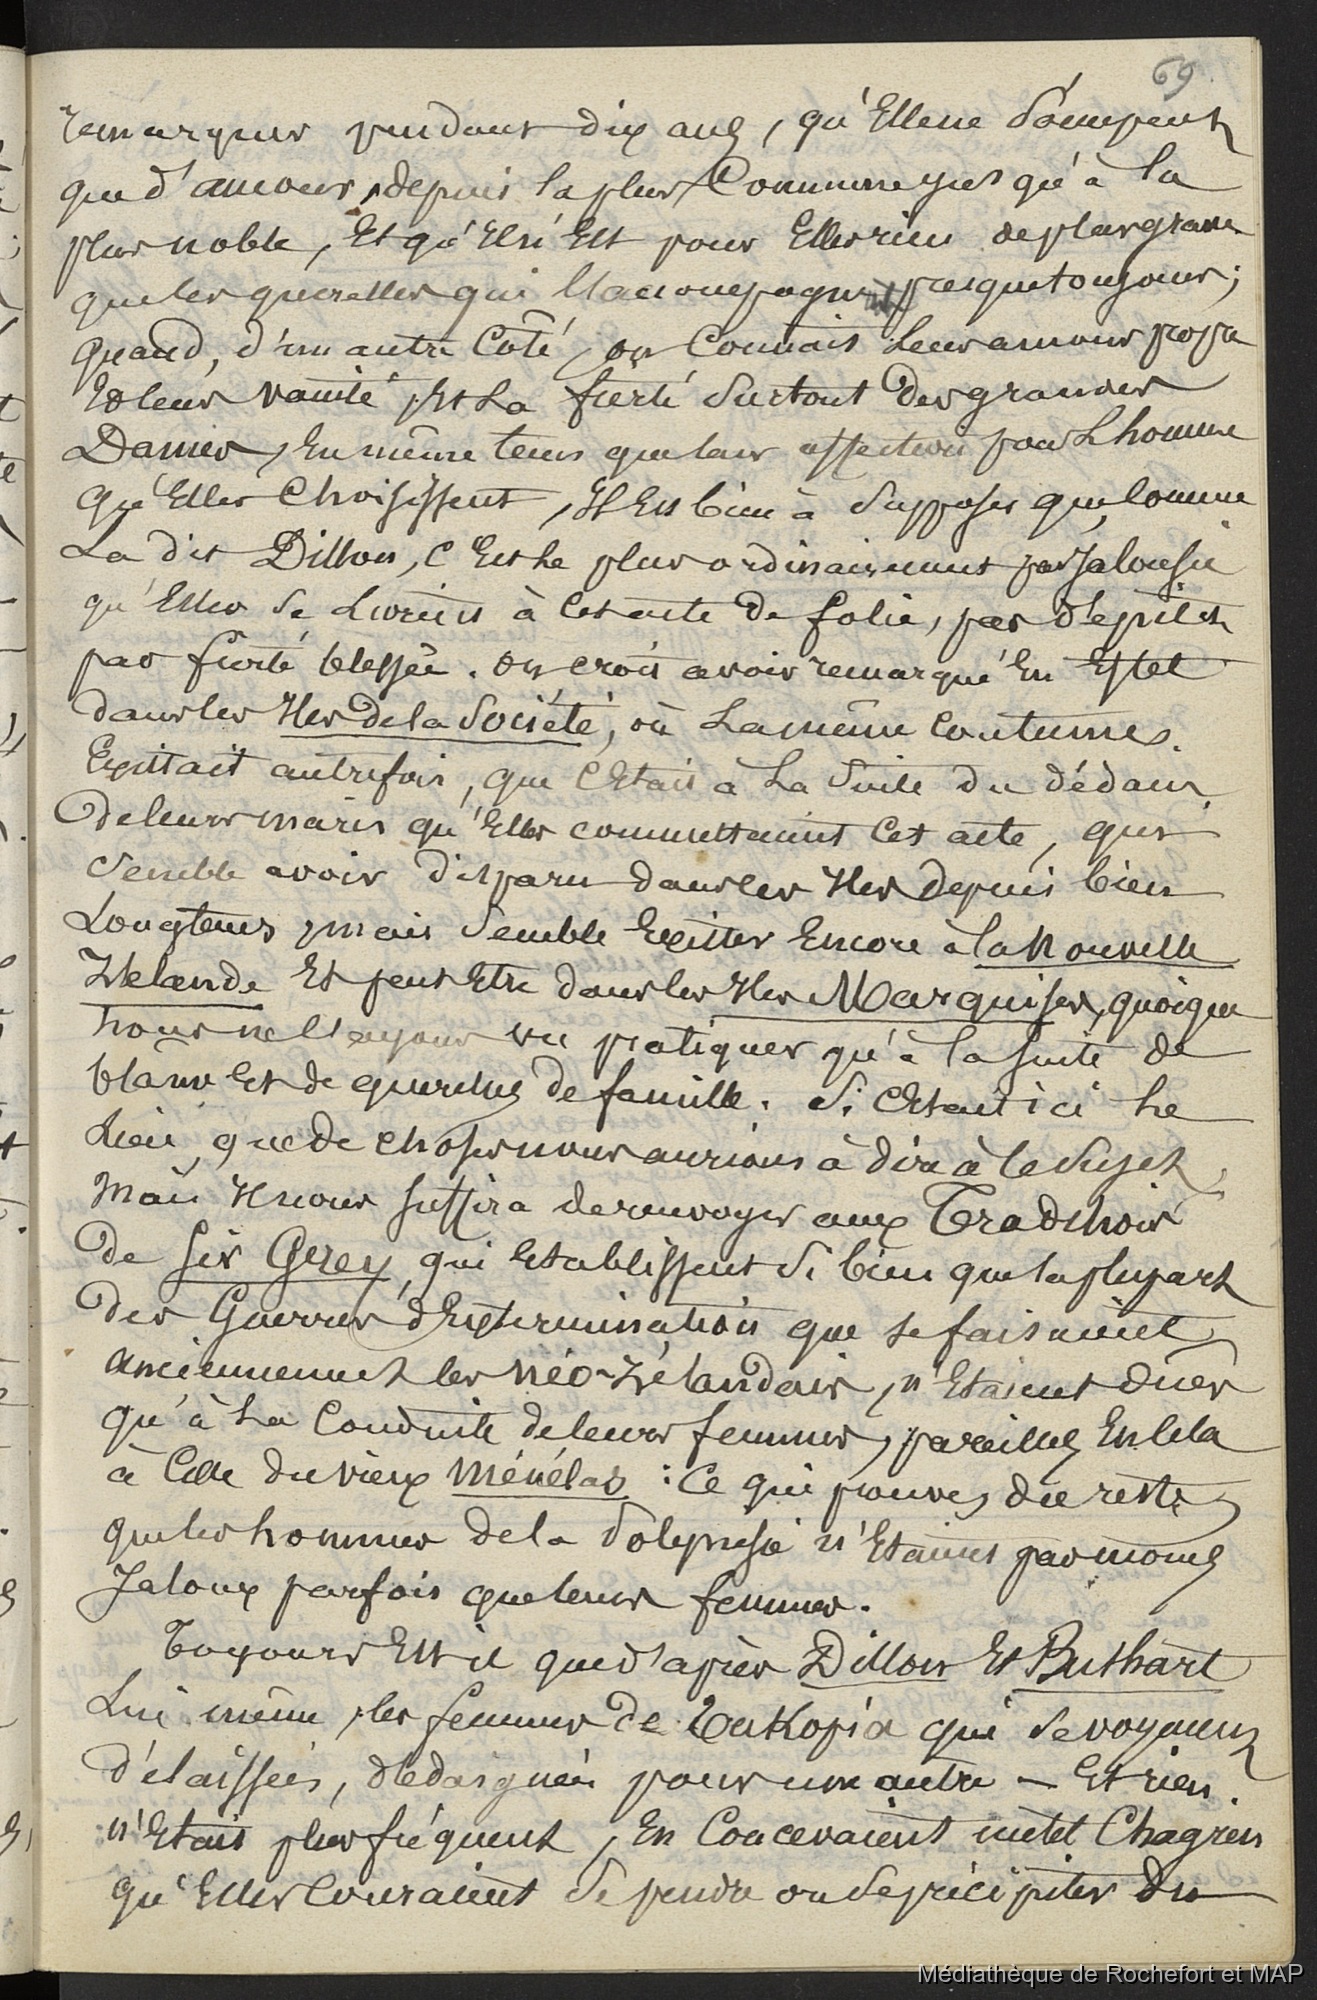 69
remarquer pendant dix ans, qu'Elle ne s'occupent
que d'amour, depuis la plus Commune jusqu'à la
plus noble, Et qu'il n'Est pour Elles rien de plus grave
que les querelles qui l'accompagnent presque toujours;
quand, d'un autre Côté, on Connait leur amour propre
Et leur vanité, Et La fierté surtout des grandes
Dames, En même tems que leur affection pour L'homme
qu'Elles Choisissent, Il Est bien à supposer que, Comme
La dit Dillon, C'Est le plus ordinairement par Jalousie
qu'Elles se Livrent à Cet acte de folie, par dépit et
par fierté blessée. On croit avoir remarqué En Effet
dans les Iles de la Société, où La même Coutume
Existait autrefois, que C'Etait à La suite du dédain
de leurs maris qu'Elles commettaient Cet acte, qui
semble avoir disparu dans les Iles depuis bien
Longtems, mais semble Exister Encore à la Nouvelle
Zélande Et peut Etre dans les Iles Marquises, quoique
nous ne l'ayons vu pratiquer qu'à la suite de
blâme Et de querelles de famille. Si C'Etait ici le
Lieu, que de choses nous aurions à dire à Ce sujet,
Mais Il nous suffira de renvoyer aux Traditions
de Sir Grey, qui Etablissent si bien que la plupart
des Guerres d'Extermination que se faisaient
anciennement les Néo-Zélandais, n'Etaient dûes
qu'à La Conduite de leurs femmes, pareilles En Cela
à Celle du vieux Ménélas : Ce qui prouve, du reste,
que les hommes de la Polynésie n'Etaient pas moins
Jaloux parfois que leurs femmes.
Toujours Est il que d'après Dillon Et Buthart
Lui même, les femmes de Tukopia qui se voyaient
délaissées, dédaignées pour une autre — Et rien
n'Etait plus fréquent, En Concevaient un tel Chagrin
qu'Elles Couraient se pendre ou se précipiter du
Médiathèque de Rochefort et MAP